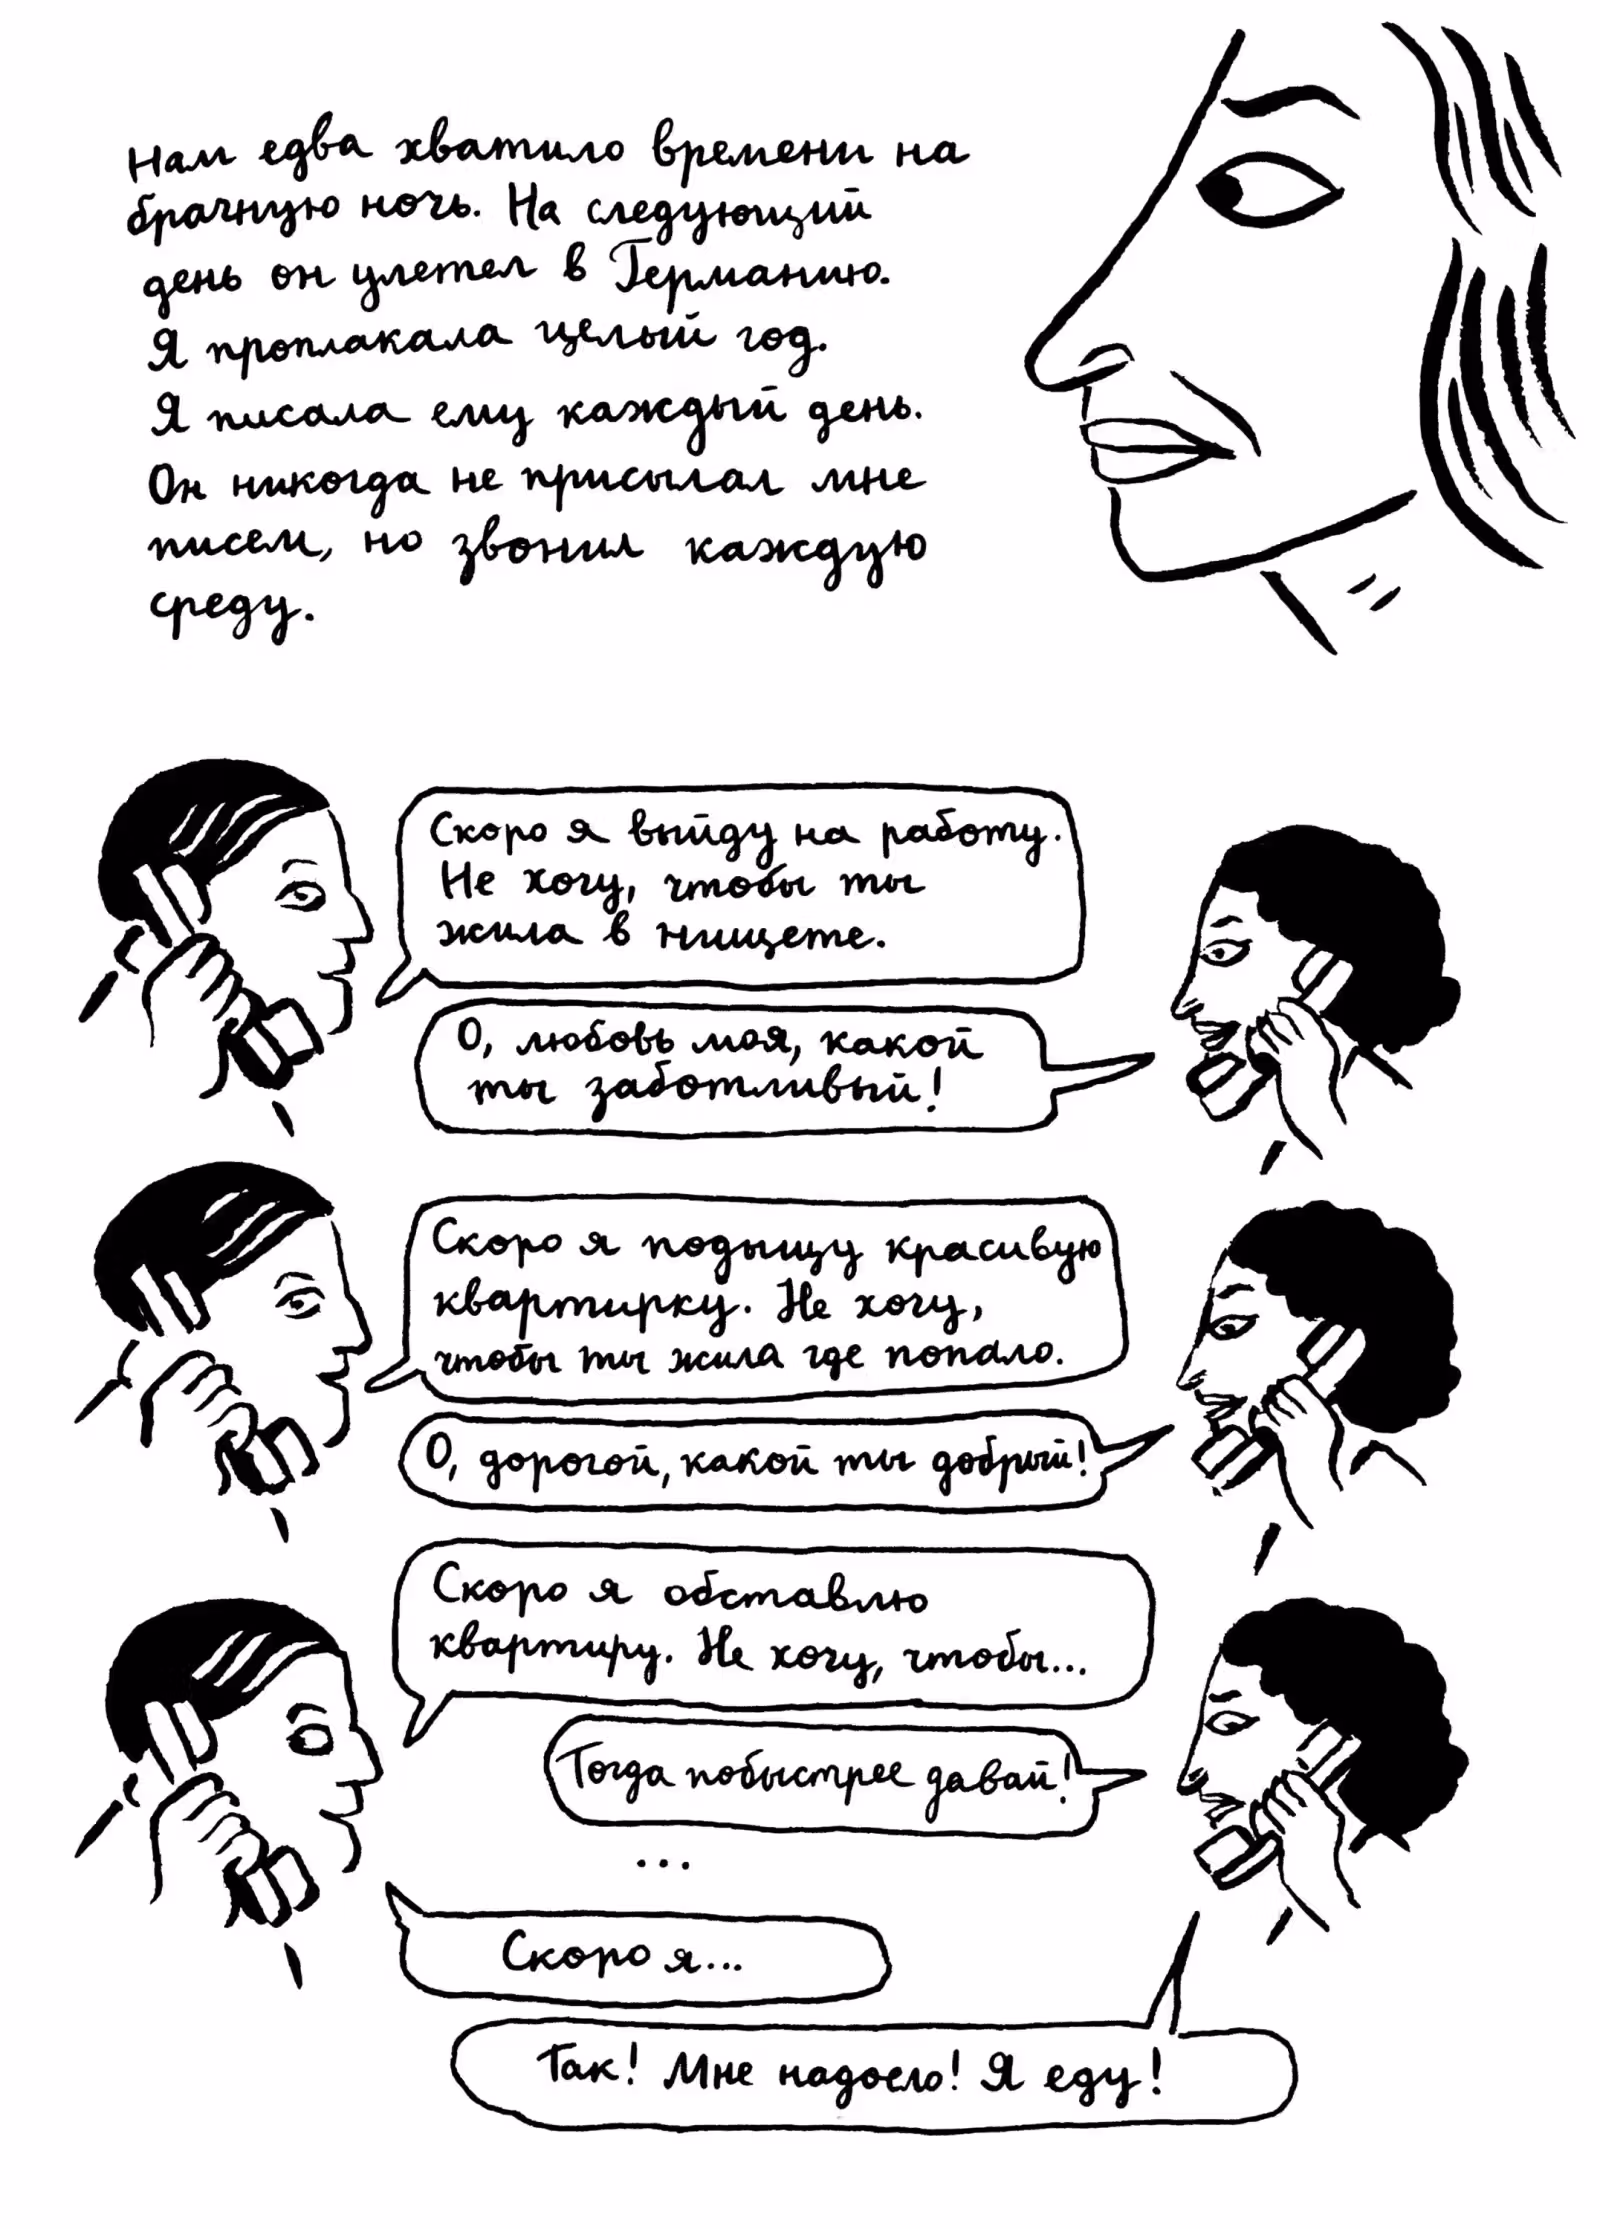 Нам едва хватило времени на
брачную ночь. На следующий
день он улетел в Германию.
Я проплакала целый год.
Я писала ему каждый день.
Он никогда не присылал мне
писем, но звонил каждую
среду.
Скоро я выйду на работу.
Не хочу, чтобы ты
жила в нищете.
О, любовь моя, какой
ты заботливый!
Скоро я подыщу красивую
квартирку. Не хочу,
чтобы ты жила где попало.
О, дорогой, какой ты добрый!
Скоро я обставлю
квартиру. Не хочу, чтобы...
Тогда побыстрее давай!
...
Скоро я...
Так! Мне надоело! Я еду!